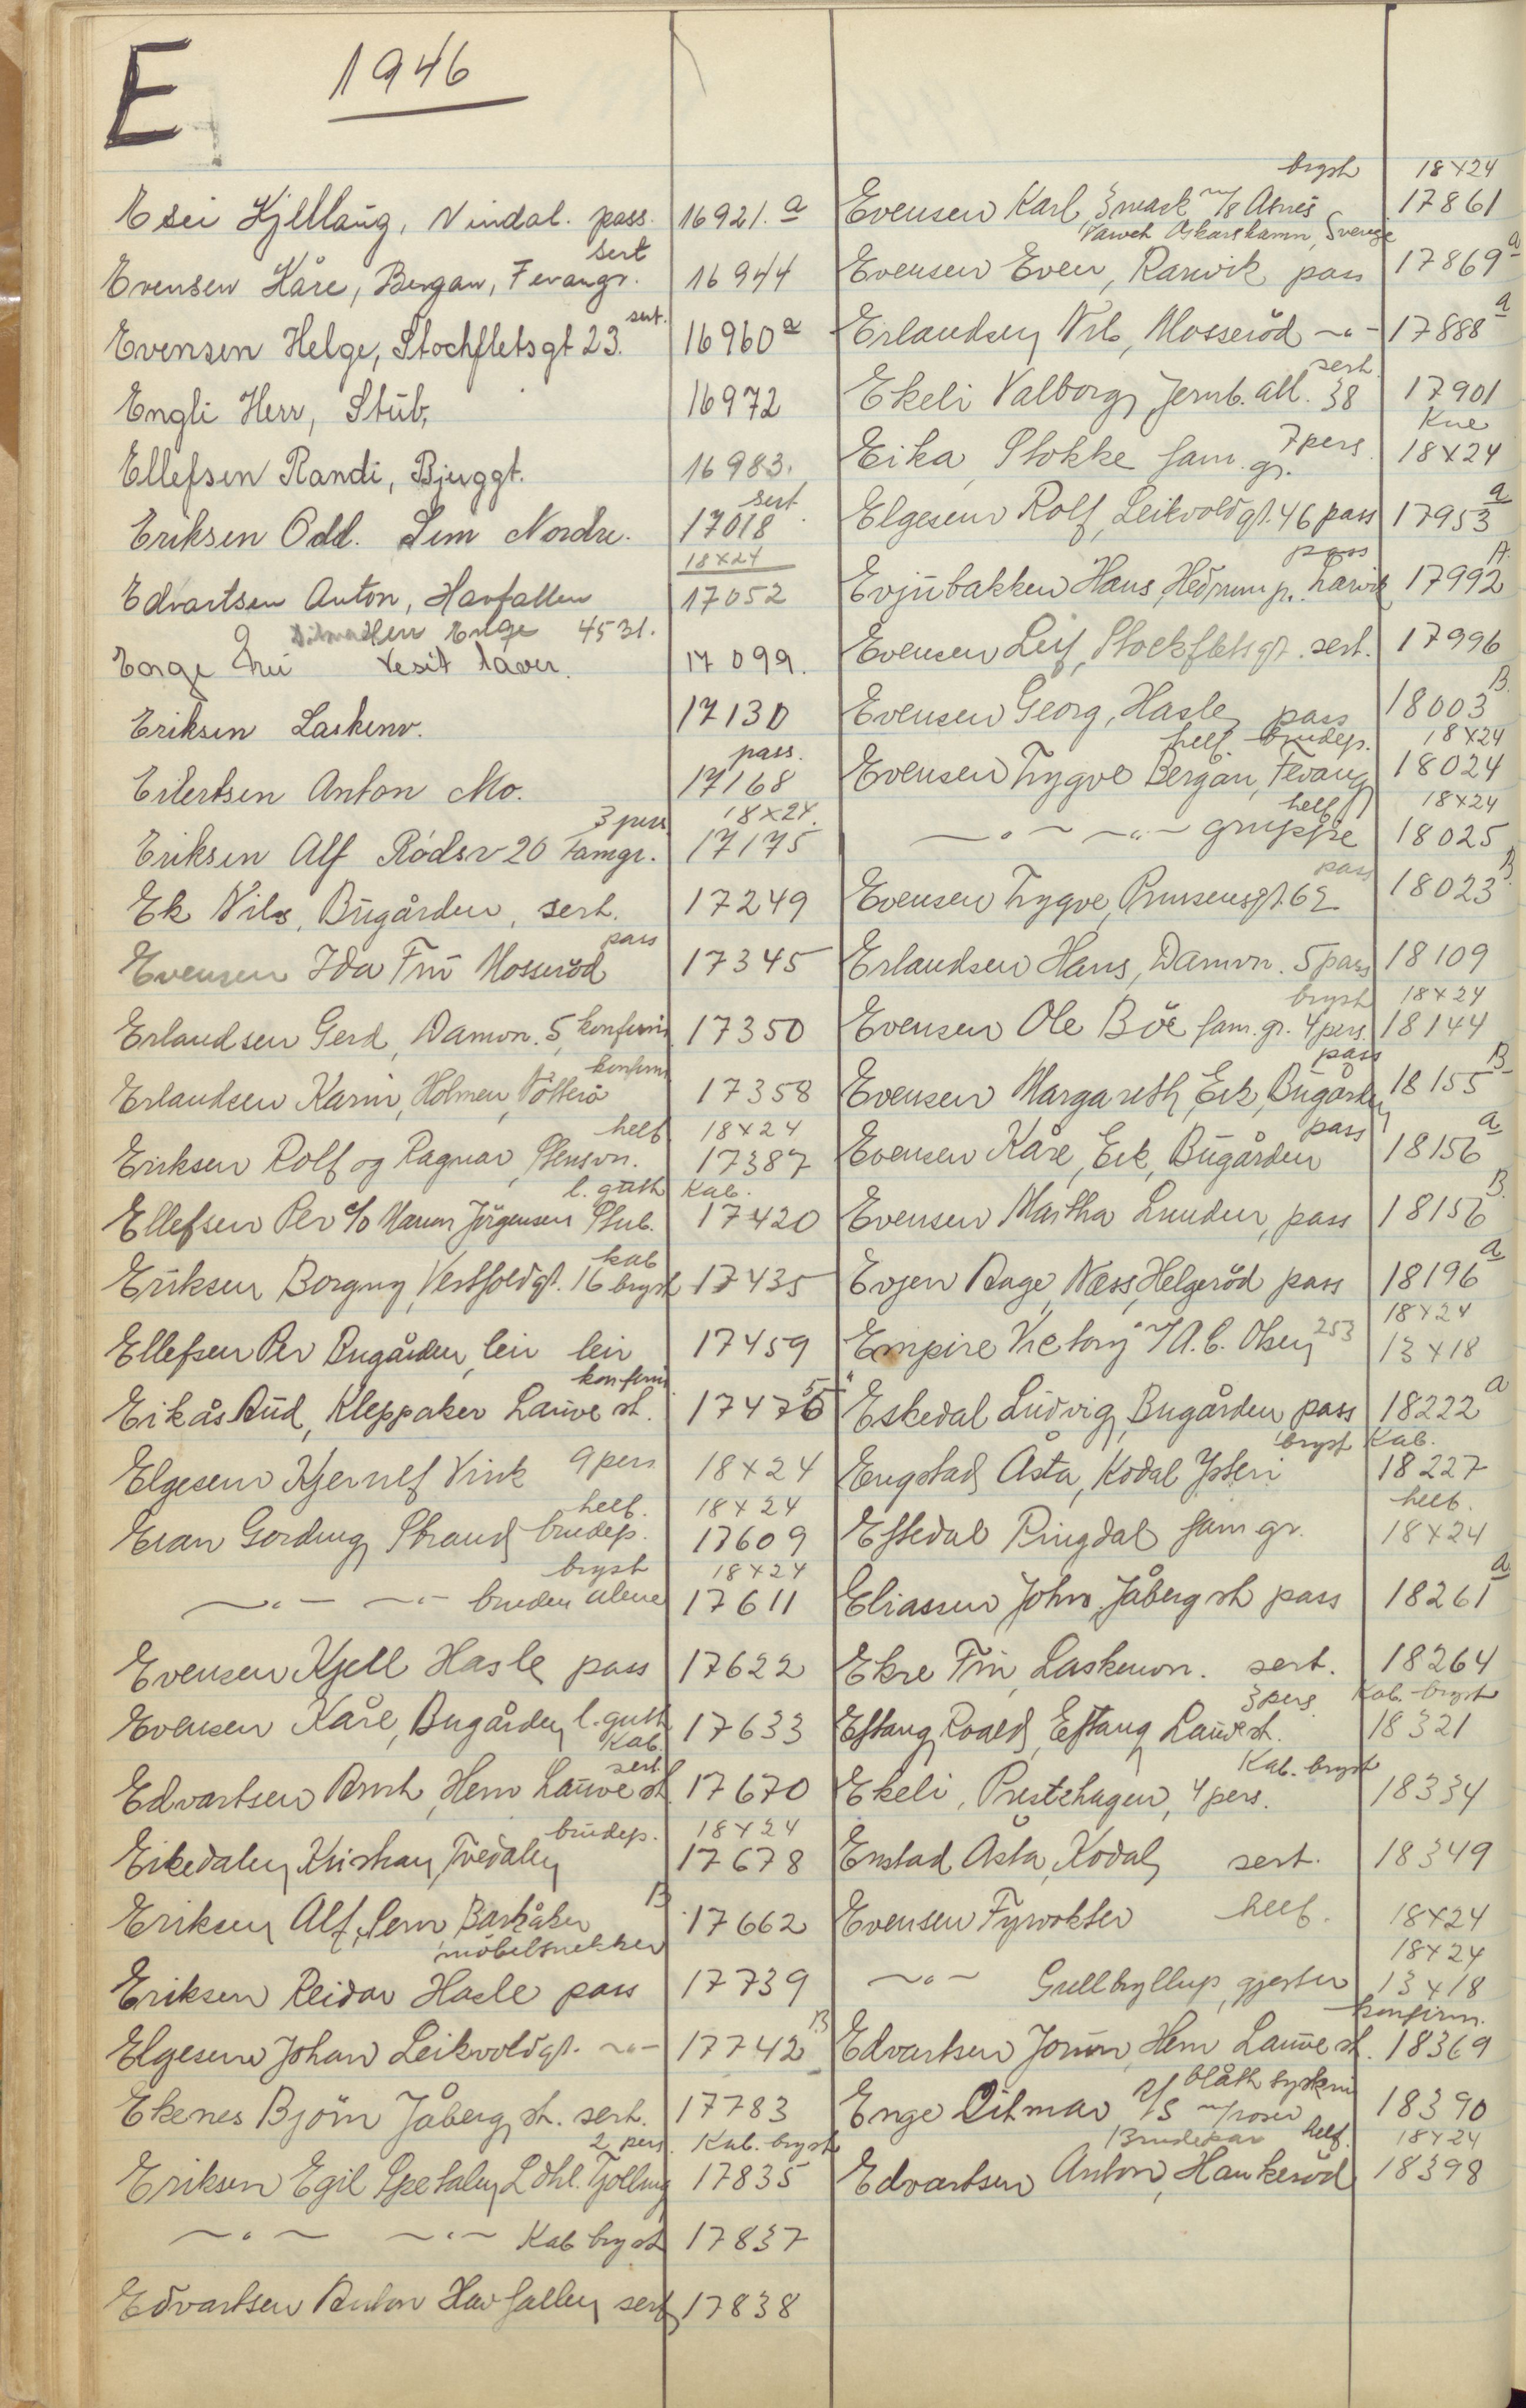 E 1946
Esei Kjellaug, Vindal. pass. 16921.a
sert
Evensen Kåre, Bergan, Fevangr. 16944
sert.
Evensen Helge, Stockfletsgt 23. 16960 a
Engli Herr, Stub, 16972
Ellefsen Randi, Bjerggt. 16983.
sert.
Eriksen Odd. Sem Nordre. 17018
18x24
Edvartsen Anton, Havfallen 17052
Enge 4531.
Fru visit 17099.
Eriksen Laskenv. 17130
pass.
Eilertsen Anton Mo. 17168
3 pers 18x24.
Eriksen Alf Rødsv 20 famgr. 17175
Ek Nils, Bugården, sert. 17249
pass
Evensen Ida Fru Mosserød 17345
Erlandsen Gerd, Damvn. 5, konfirm 17350
konfirm
Erlandsen Karin, Holmen, Nötterö 17358
helf. 18x24
Eriksen Rolf og Ragnar, Stensvn. 17387
l. gutt Kab.
Ellefsen Per c/o Maren Jörgensen Stub. 17420
kab
Eriksen Borgny, Vestfoldgt. 16 bryst 17435
Ellefsen Per Bugården, leir leir 17459
konfirm.
Eikås Aud, Kleppaker Lauve st. 17476 55
Elgesem Kjernulf Vink 9 pers 18x24
helf. 18x24
Evan Gording, Strand brudep. 17609
bryst 18x24
-"- -"- bruden alene 17611
Evensen Kjell Hasle pass 17622
Evensen Kåre, Bugården l. gutt 17633
Kab.
sert.
Edvartsen Arnt, Hem Lauve st. 17670
brudep. 18x24
Eikedalen Kristian, Tvedalen 17678
B
Eriksen Alf, Sem, Barkåker 17662
möbelsnekker
Eriksen Reidar Hasle pass 17739
Elgesem Johan Leikvoldgt. -"- 17742 B
Ekenes Björn Jåberg st. sert. 17783
2 pers. Kab. bryst
Eriksen Egil Spetalen Ldhl. Tjölling 17835
-"- -"- Kab bryst 17837
Edvartsen Anton Havfallen sert 17838
bryst 18x24
Evensen Karl, 3 mask m/s Asnes 17861
Oskarshamn, Sverige
Evensen Even, Ranvik pass 17869 a
Erlandsen Nils, Mosseröd -"- 17888 a
sert.
Ekeli Valborg, Jernb. all. 38 17901
Kne
7 pers.
Eika, Stokke fam. gr. 18x24
Elgesem Rolf, Leikvoldgt. 46 pass 17953 a
pass
Evjubakken Hans, Hedrum p. Larvik 17992 A.
Evensen Leif, Stockfletsgt. sert. 17996
Evensen Georg, Hasle pass 18003 B.
helf. brudep. 18x24
Evensen Trygve Bergan, Fevang 18024
helf 18x24
-"- -"- gruppe 18025
pass
Evensen Trygve, Prinsensgt. 62 18023 B.
Erlandsen Hans, Damvn. 5 pass 18109
bryst 18x24
Evensen Ole Böe fam. gr. 4 pers. 18144
pass
Evensen Margareth, Eik, Bugården 18155 B
pass
Evensen Kåre, Eik, Bugården 18156 a
Evensen Martha Lunden, pass 18156 B.
Evjen Aage, Næss, Helgeröd pass 18196 a
18x24
"Empire Victory" A.C. Olsen 253 13x18
Eskedal Ludvig, Bugården pass 18222 a
bryst Kab.
Engstad Åsta, Kodal Ysteri 18227
helf.
Eftedal Ringdal fam gr. 18x24
Eliassen John, Jåberg st pass 18261 a
Ekre Fru, Laskenvn. sert. 18264
3 pers. Kab. bryst
Eftang Roald, Eftang Lauve st. 18321
Kab. bryst
Ekeli, Prestehagen, 4 pers. 18334
Enstad Åsta, Kodal sert. 18349
Evensen Fyrvokter helf. 18x24
18x24
-"- Gullbryllup, gjester 13x18
konfirm.
Edvartsen Jorun, Hem Lauve st. 18369
Enge Ditmar 18390
Brudepar helf. 18x24
Edvartsen Anton, Haukeröd 18398